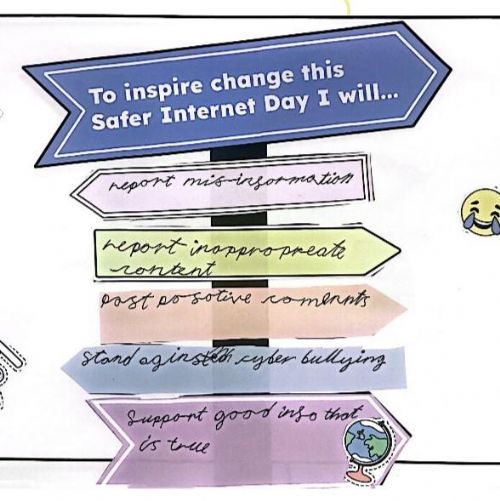 To inspire change this
Safer Internet Day I will...
report mis-information
report inappropreate
content
post posotive comennts
stand aginst cyber bullying
Support good info that
is true